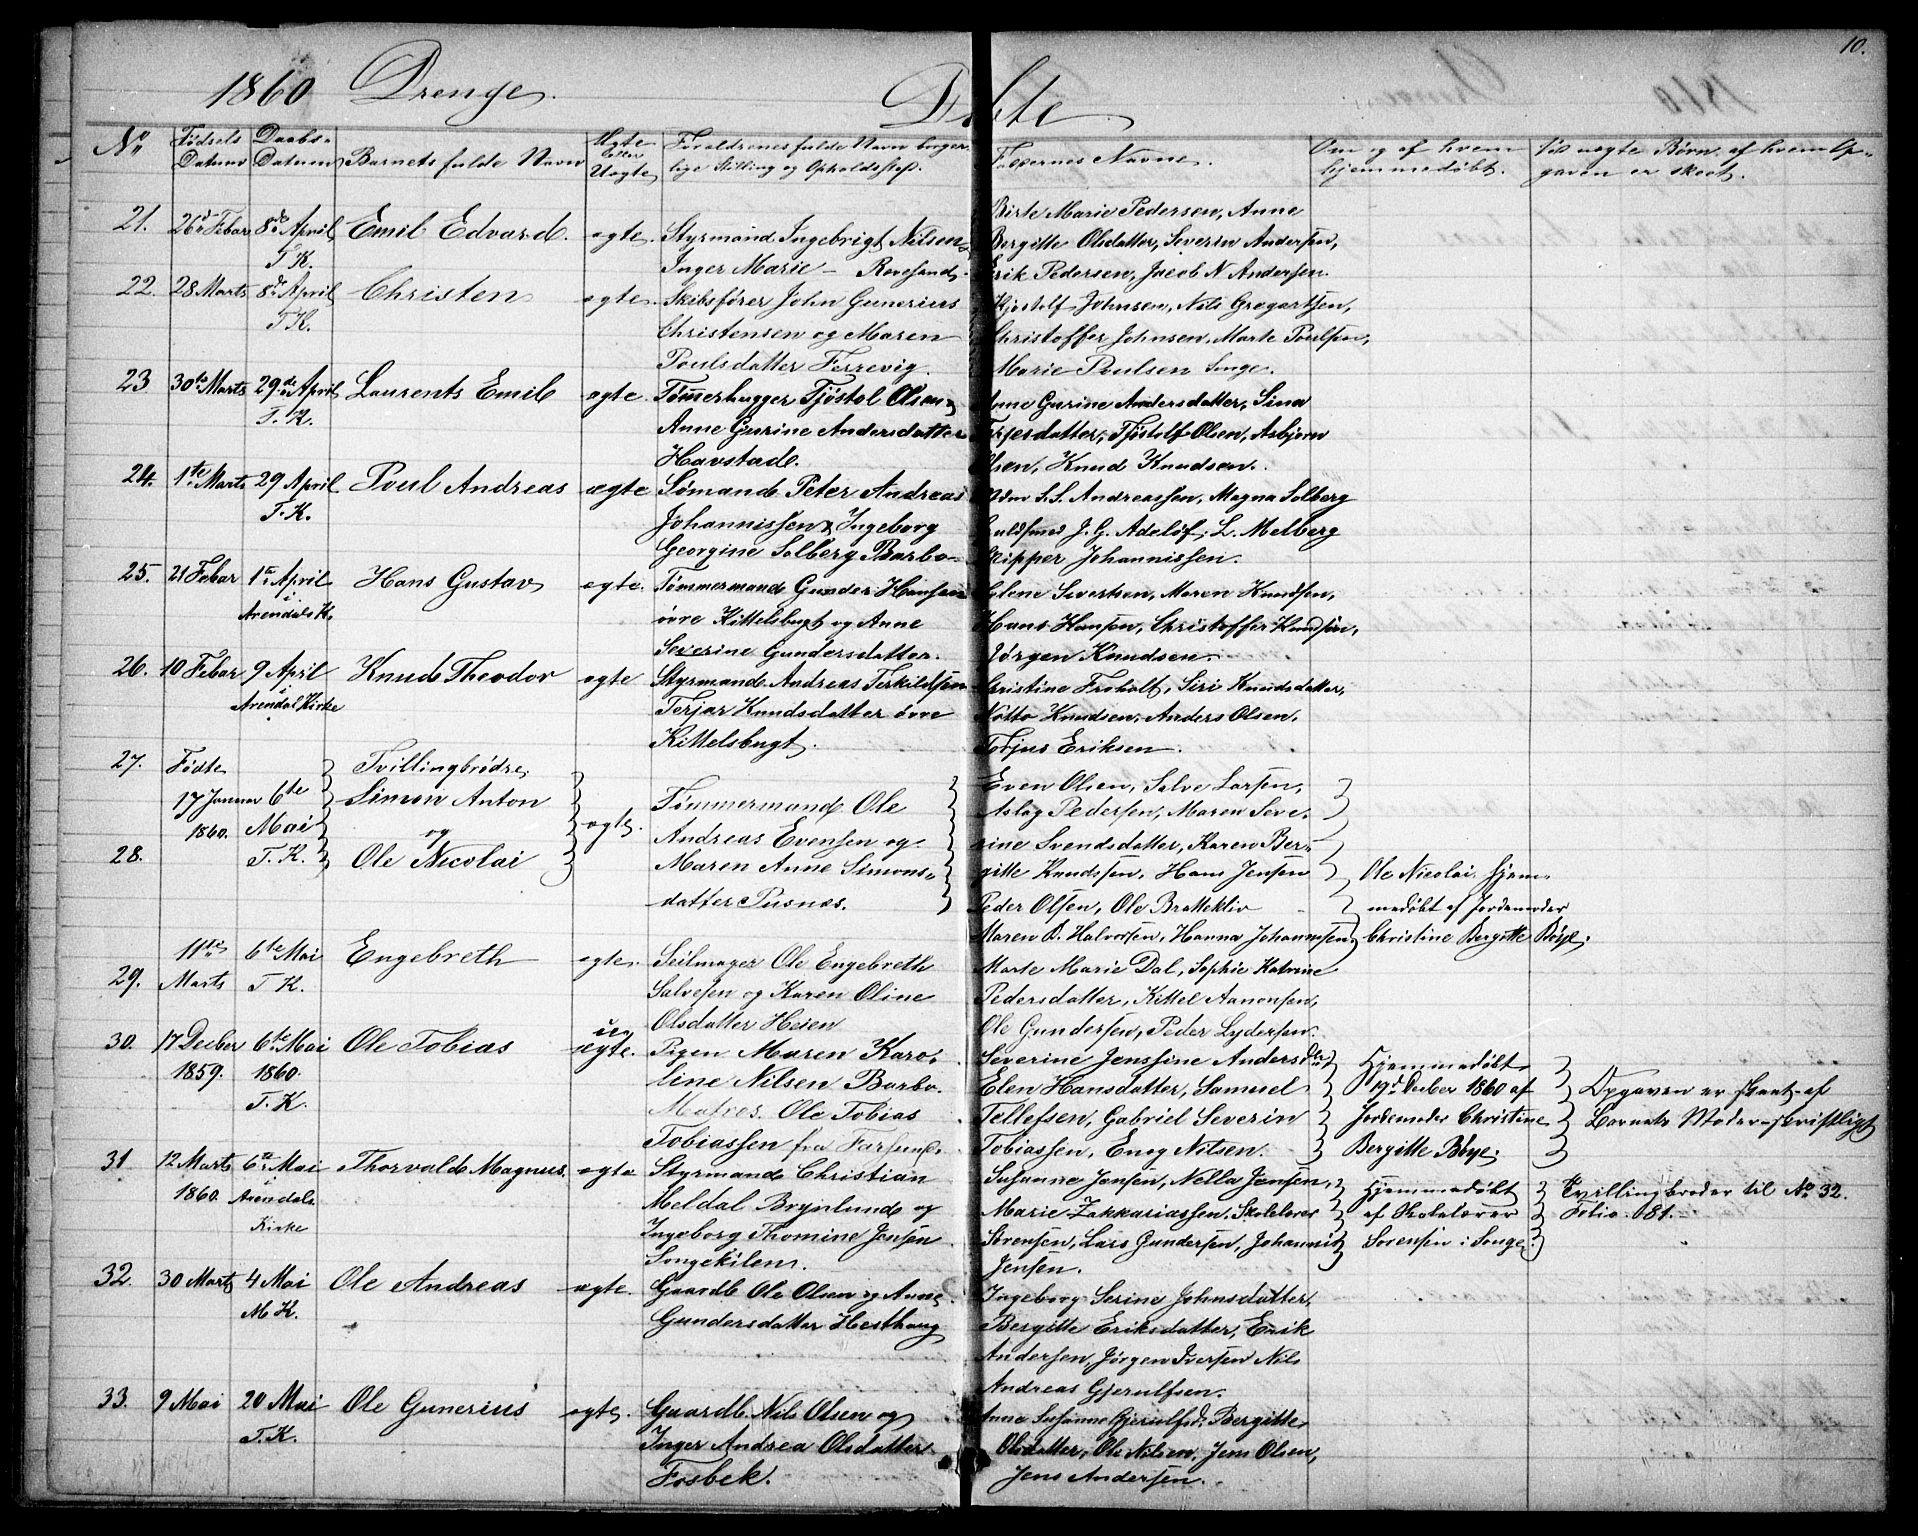 10.
1860 Drenge. Døbte
No Fødsels Datum Daabs- Datum Barnets fulde Navn Ægte eller Uægte Forældrenes fulde Navn borgerlige Stilling og Opholdssted. Faddernes Navne. Om og af hvem hjemmedøbt. Ved uægte Børn, af hvem Opgaven er skeet.
21. 26de Febar 8de April Emil Edvard. ægte. Styrmand Ingebrigt Nilsen Birte Marie Pedersen, Anne
T K. Inger Marie - Revesand. Bergitte Olsdatter, Severin Andersen,
Erik Pedersen, Jacob N Andersen.
22. 28 Marts 8de April Christen ægte. Skibsfører John Gunerius Johnsen, Nils Gregertsen,
T K. Christensen og Maren Christoffer Johnsen, Marte Poulsen,
Poulsdatter Ferrevig. Marie Poulsen Songe.
23 30te Marts 29de April Laurents Emil ægte. Tømerhugger Tjøstol Olsen & Anne Gurine Andersdatter, Sina
T. K. Anne Gurine Andersdatter Terjesdatter, Tjøstolf Olsen, Asbjørn
Havstad. Olsen, Knud Knudsen.
24. 1te Marts 29 April Poul Andreas ægte Sømand Peter Andreas S. S. Andreassen, Magna Solberg
T. K. Johannissen & Ingeborg Guldsmed J. G. Adeløf, L. Melberg
Georgine Solberg Barbo- Skipper Johannissen.
25. 21 Febar 1ste April Hans Gustav ægte. Tømmermand Gunder Hansen Elene Sivertsen, Maren Knudsen,
i Arendals K. øvre Kittelsbugt og Anne Hans Hansen, Christoffer Knudsen,
Severine Gundersdatter. Jørgen Knudsen.
26. 10 Febar 9 April Knud Theodor ægte Styrmand Andreas Terkildsen Christine Froholt, Siri Knudsdatter,
i Arendal Kirke Terjer Knudsdatter øvre Notto Knudsen, Anders Olsen,
Kittelsbugt. Tobjus Eriksen.
27. Fødte Tvillingbrødre Even Olsen, Salve Larsen,
17 Januar 6te Simon Anton Tømmermand Ole Aslag Pedersen, Maren Seve-
1860. Mai og ægte. Andreas Evensen og rine Svendsdatter, Karen Ber-
28. T. K. Ole Nicolai Maren Anne Simons- gitte Knudsen, Hans Jensen Ole Nicolai hjem-
datter Pusnes. Peder Olsen, Ole Bratteklev medøbt af Jordemoder
Maren B. Halvorsen, Hanna Johannsen, Christine Bergitte Bøye.
11te 6te Mai Engebreth ægte. Seilmager Ole Engebreth Marte Marie Dal, Sophie Katrine
29. Marts T K. Salvesen og Karen Oline Pedersdatter, Kittel Aanonsen,
Olsdatter Heien Ole Gundersen, Peder Lydersen.
30. 17 Decber 6te Mai Ole Tobias uegte ægte. Pigen Maren Karo- Severine Jenssine Andersdtr Hjemmedøbt
1859. 1860. line Nilsen Barbo. Elen Hansdatter, Samuel 19d Decber 1860 af Opgaven er skeet af
T. K. Matros Ole Tobias Tellefsen, Gabriel Severin Jordemoder Christine Barnets Moder skriftligt
Tobiassen fra Farsund. Tobiassen, Enog Nilsen. Bergitte Bøye.
31 12 Marts 6te Mai Thorvald Magnus. ægte Styrmand Christian Susanne Jensen, Nella Jensen, Hjemmedøbt Tvillingbroder til No 32.
1860. i Arendals Meldal Brynlund og Marie Zakkariassen, Skolelærer af Skolelærer Folio 181.
Kirke Ingeborg Thomine Jensen Sørensen, Lars Gundersen, Johannis Sørensen i Songe.
Songekilen. Jensen.
32. 30 Marts 4 Mai Ole Andreas ægte. Gaardb. Ole Olsen og Anne Ingeborg Serine Johnsdatter,
M K. Gundersdatter Hesthaug Bergitte Eriksdatter, Erik
Andersen, Jørgen Iversen Nils
Andreas Gjerulfsen.
33. 9 Mai 20 Mai Ole Gunerius ægte. Gaardb. Nils Olsen og Anne Susanne Gjerulfsd. Bergitte
T. K. Inger Andrea Olsdatter Olsdatter, Ole Nilsen, Jens Olsen,
Fosbek. Jens Andersen.